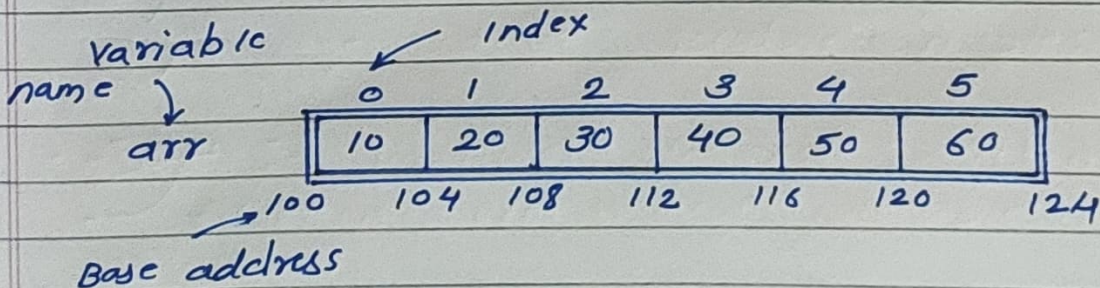 variable
Index
name
0 1 2 3 4 5
arr
10 20 30 40 50 60
100 104 108 112 116 120 124
Base address